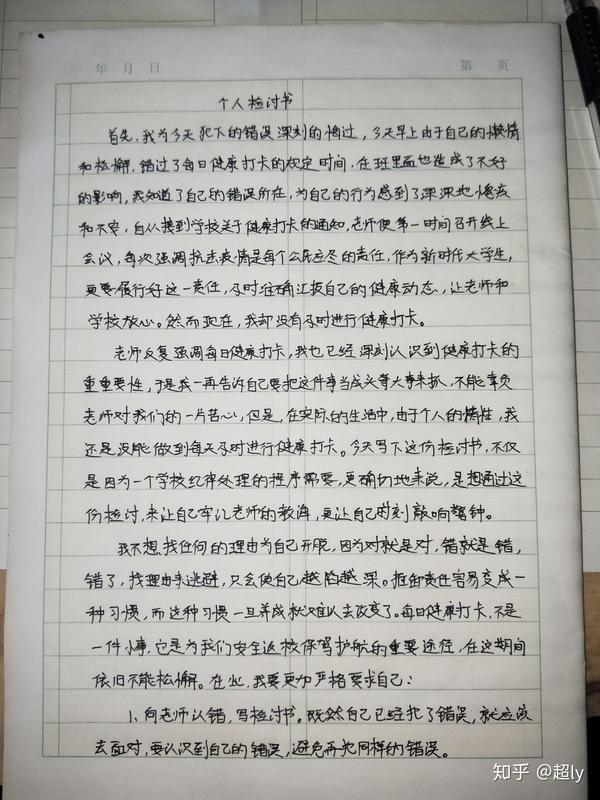 年 月 日
第 页
个人检讨书
首先,我为今天犯下的错误深刻的悔过,今天早上由于自己的懒惰
和松懈,错过了每日健康打卡的规定时间,在班里面也造成了不好
的影响,我知道了自己的错误所在,为自己的行为感到了深深地愧疚
和不安,自从接到学校关于健康打卡的通知,老师便第一时间召开线上
会议,每次强调抗击疫情是每个公民应尽的责任,作为新时代大学生,
更要履行好这一责任,及时准确汇报自己的健康动态,让老师和
学校放心。然而现在,我却没有及时进行健康打卡。
老师反复强调每日健康打卡,我也已经深刻认识到健康打卡的
重重要性,于是我一再告诉自己要把这件事当成头等大事来抓,不能辜负
老师对我们的一片苦心,但是,在实际的生活中,由于个人的惰性,我
还是没能做到每天及时进行健康打卡。今天写下这份检讨书,不仅
是因为一个学校纪律处理的程序需要,更确切地来说,是想通过这
份检讨,来让自己牢记老师的教诲,更让自己时刻敲响警钟。
我不想找任何的理由为自己开脱,因为对就是对,错就是错,
错了,找理由来逃避,只会使自己越陷越深。推卸责任容易变成一
种习惯,而这种习惯一旦养成就难以去改变了。每日健康打卡,不是
一件小事,它是为我们安全返校保驾护航的重要途径,在这期间
依旧不能松懈。在此,我要更加严格要求自己:
1、向老师认错,写检讨书。既然自己已经犯了错误,就应该
去面对,要认识到自己的错误,避免再犯同样的错误。
知乎 @超ly